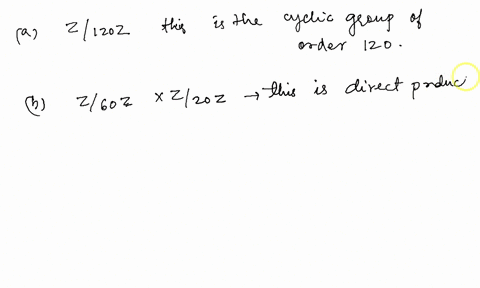 (a) Z/120Z this is the cyclic group of
order 120.
(b) Z/60Z × Z/20Z → this is direct produc